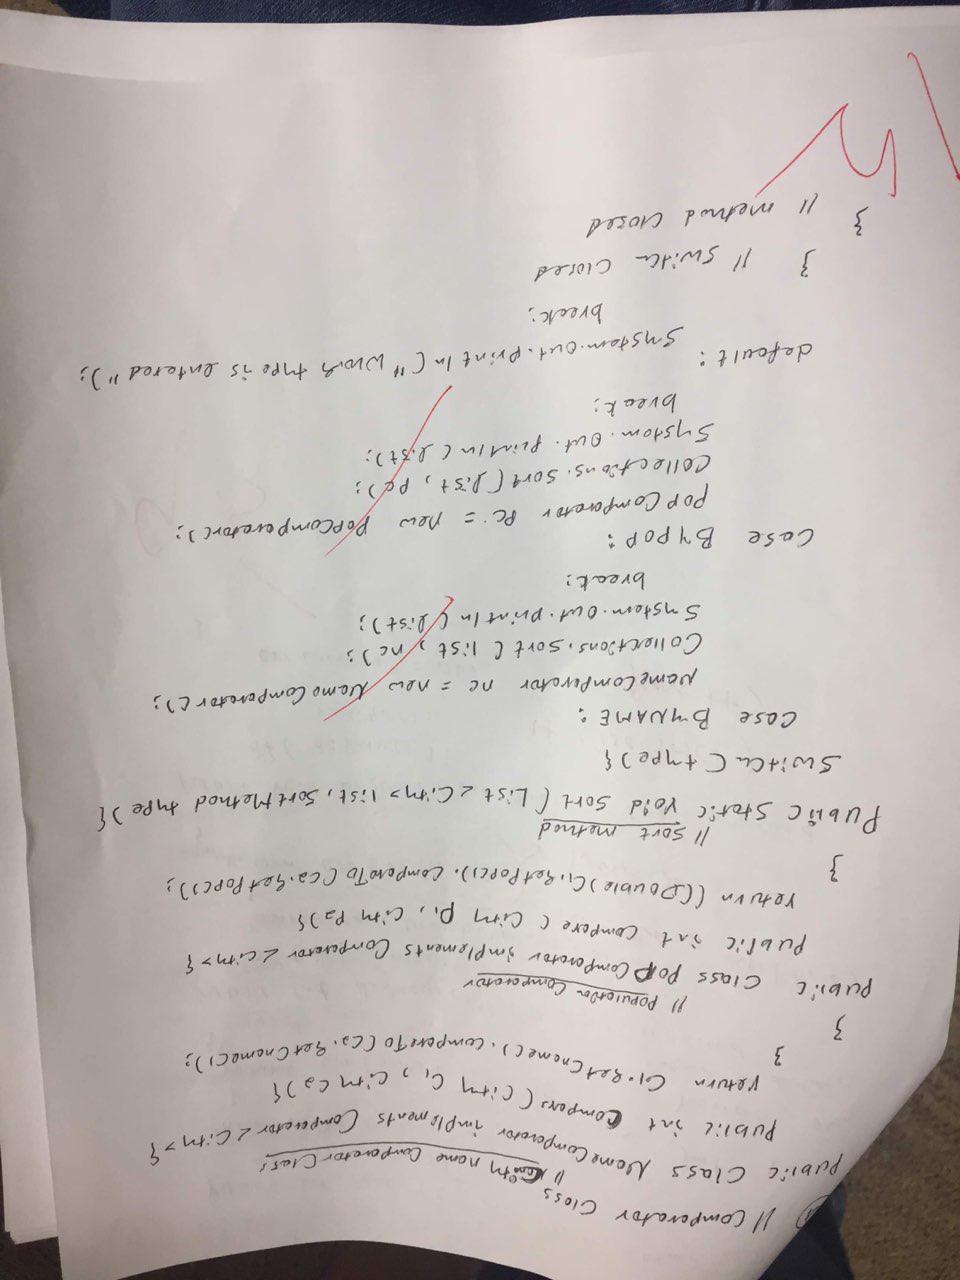 // Comparator Class
// City name Comparator Class
public Class NameComparator implements Comparator <City>{
public int Compare (City C1, City C2){
return C1.getCname().compareTo (C2.getCname());
}
}
// Population Comparator
public Class POPComparator implements Comparator <City>{
public int compare ( City P1, City P2){
return ((Double)C1.getPop()).compareTo (C2.getPop());
}
// Sort method
Public Static Void Sort (List <City> list, SortMethod type){
Switch (type){
Case ByNAME:
NameComparator nc = new NameComparator();
Collections.sort( list, nc);
System.out.println (list);
break;
Case BYPOP:
POPComparator PC = new POPComparator();
Collections.sort (list, pc);
System.out.println (list);
break;
default:
System.out.println ("Wrong type is entered");
break;
} // Switch Closed
} // method closed